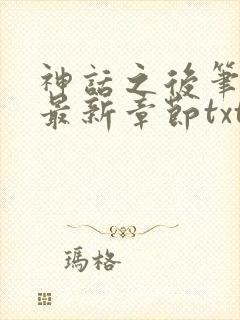 神話之後筆
最新章節txt
瑪格